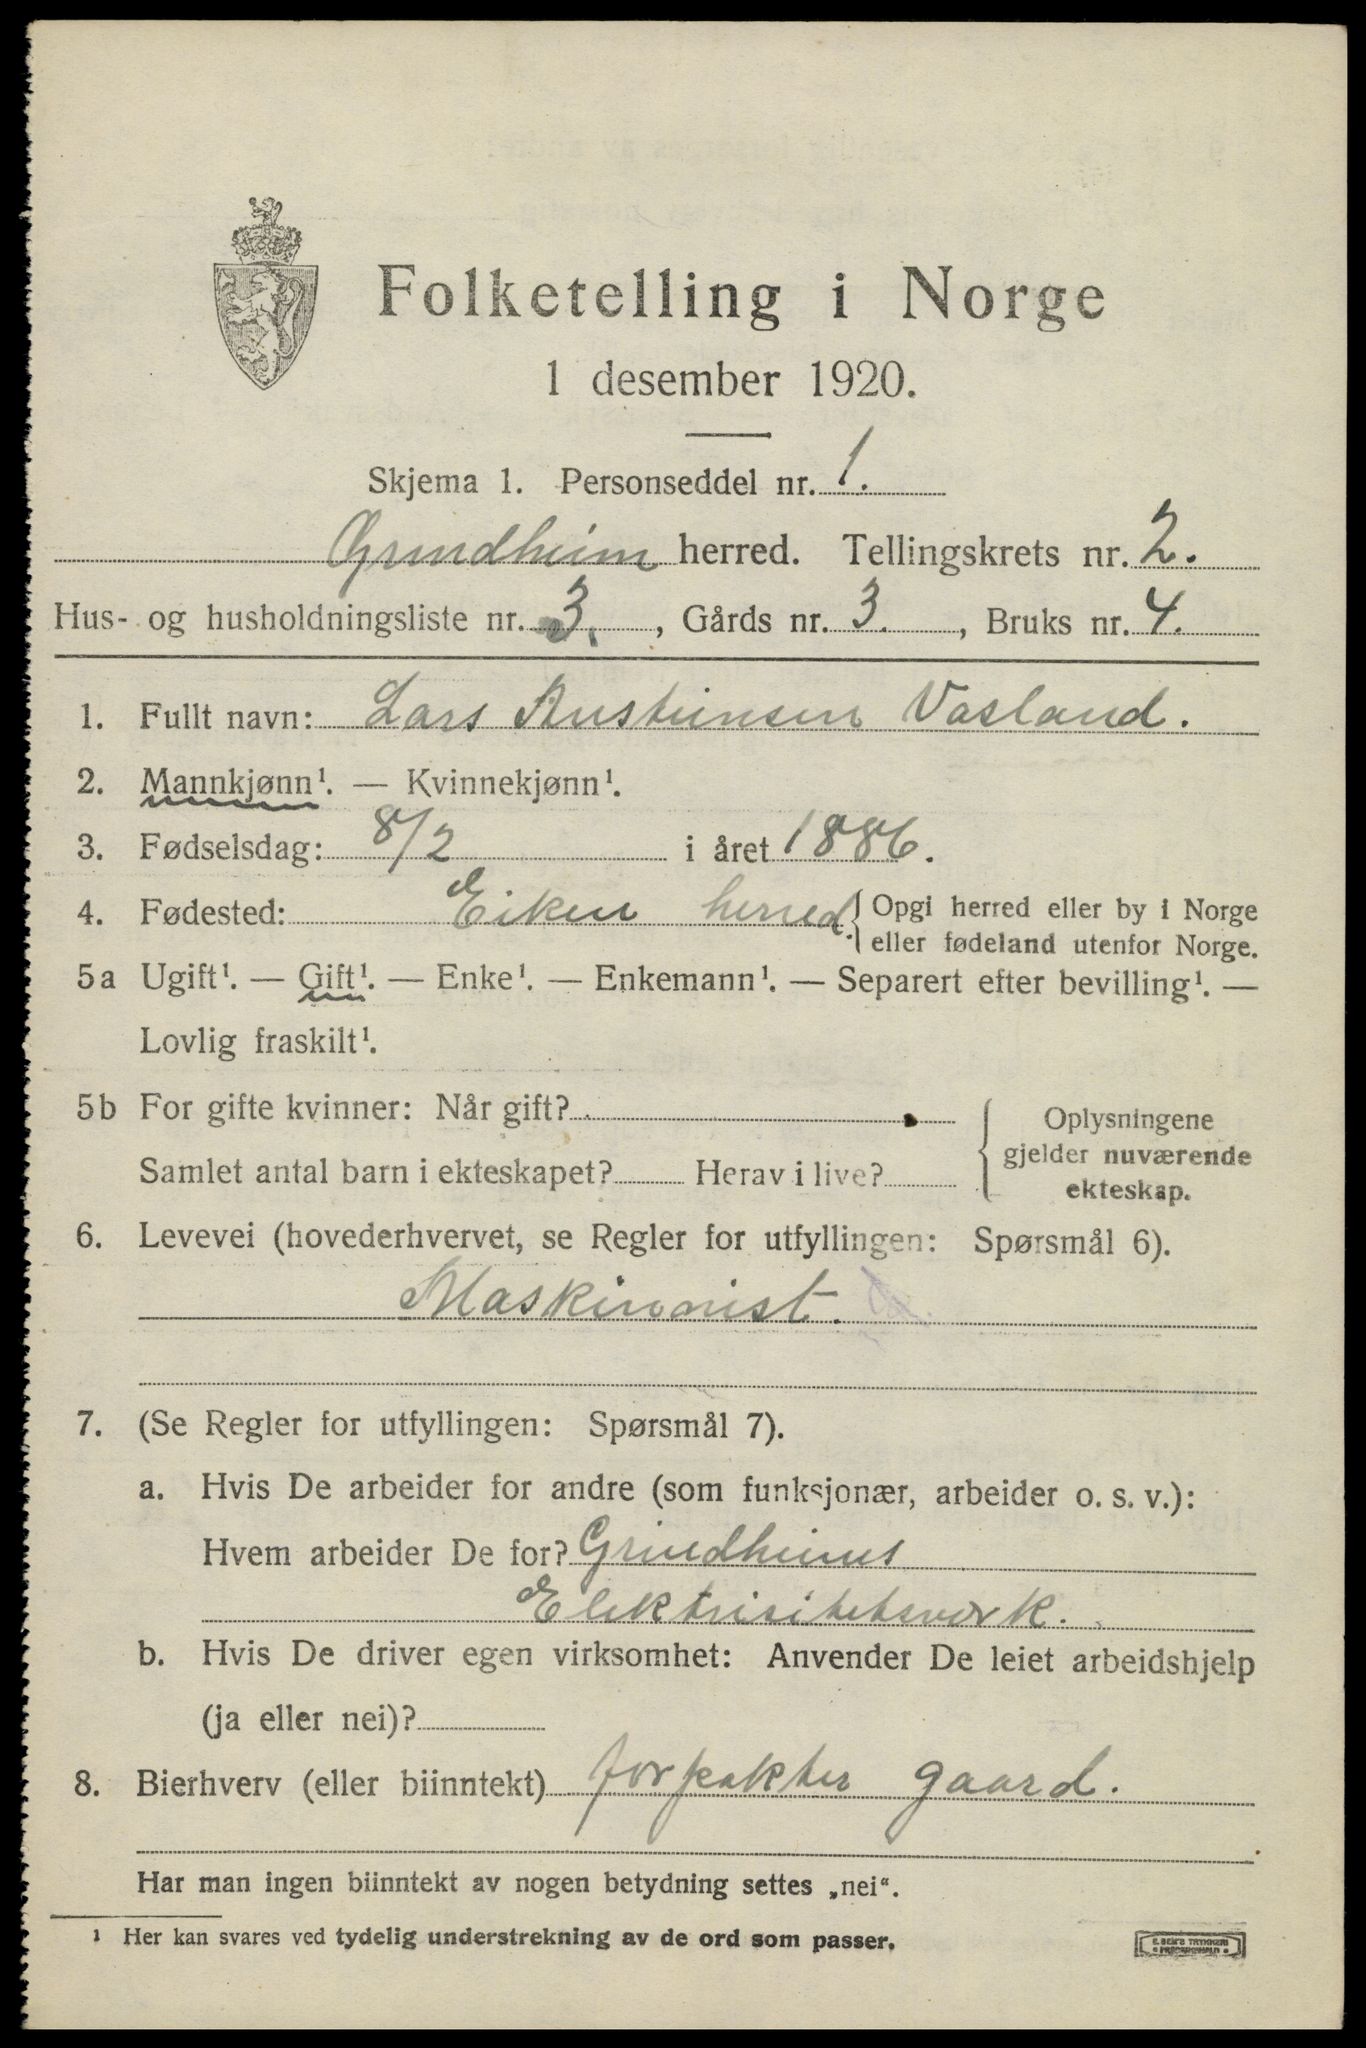 Folketelling i Norge
1 desember 1920.
Skjema 1. Personseddel nr. 1.
Grindheim herred. Tellingskrets nr. 2.
Hus- og husholdningsliste nr. 3., Gårds nr. 3., Bruks nr. 4.
1. Fullt navn: Lars Austeinsen Vasland.
2. Mannkjønn¹. — Kvinnekjønn¹.
3. Fødselsdag: 8/2 i året 1886.
4. Fødested: Eiken herred. Opgi herred eller by i Norge
eller fødeland utenfor Norge.
5a Ugift¹. — Gift¹. — Enke¹. — Enkemann¹. — Separert efter bevilling¹. —
Lovlig fraskilt¹.
5b For gifte kvinner: Når gift?
Samlet antal barn i ekteskapet? Herav i live?
Oplysningene
gjelder nuværende
ekteskap.
6. Levevei (hovederhvervet, se Regler for utfyllingen: Spørsmål 6).
Maskinnist.
7. (Se Regler for utfyllingen: Spørsmål 7).
a. Hvis De arbeider for andre (som funksjonær, arbeider o. s. v.):
Hvem arbeider De for? Grindheims
Elektrisitetsverk.
b. Hvis De driver egen virksomhet: Anvender De leiet arbeidshjelp
(ja eller nei)?
8. Bierhverv (eller biinntekt) forpakter gaard.
Har man ingen biinntekt av nogen betydning settes „nei“.
¹ Her kan svares ved tydelig understrekning av de ord som passer.